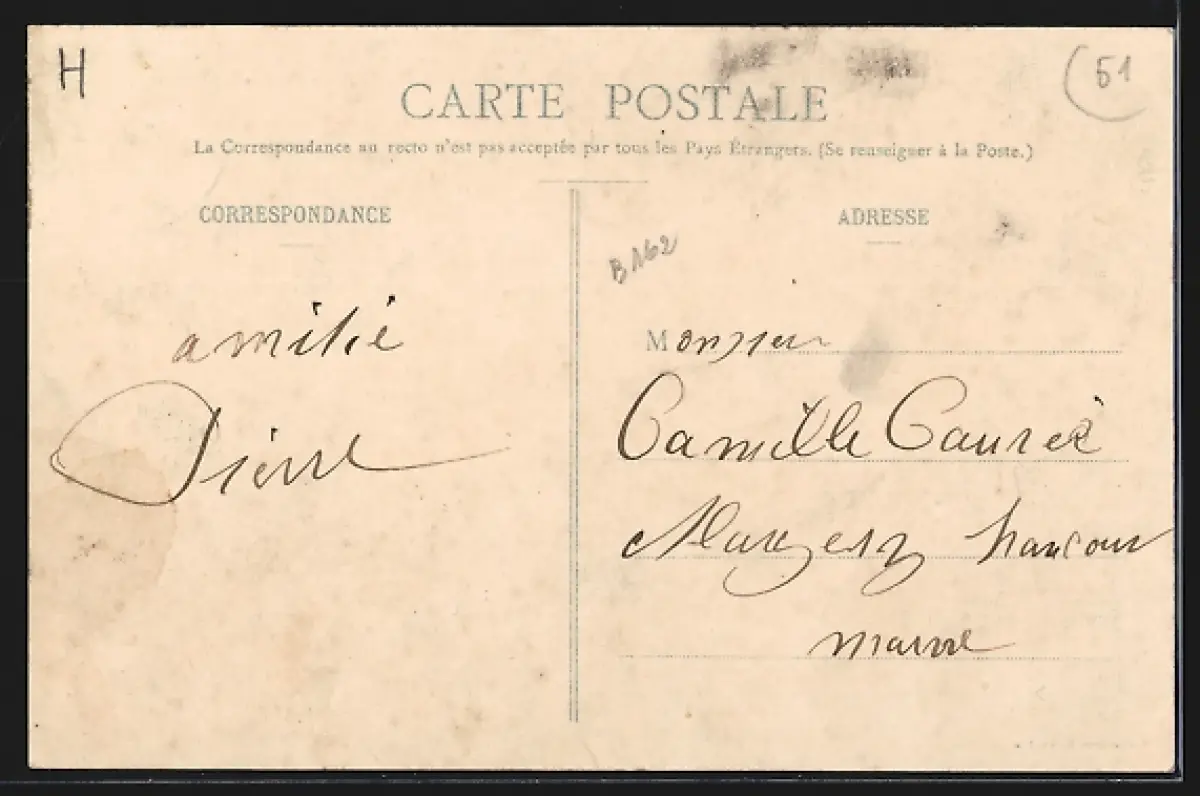 H
51
CARTE POSTALE
La Correspondance au recto n'est pas acceptée par tous les Pays Étrangers. (Se renseigner à la Poste.)
CORRESPONDANCE
amitié
Pierre
ADRESSE
B162
Monsieur
Camille Caurié
Margerie hancour
marne